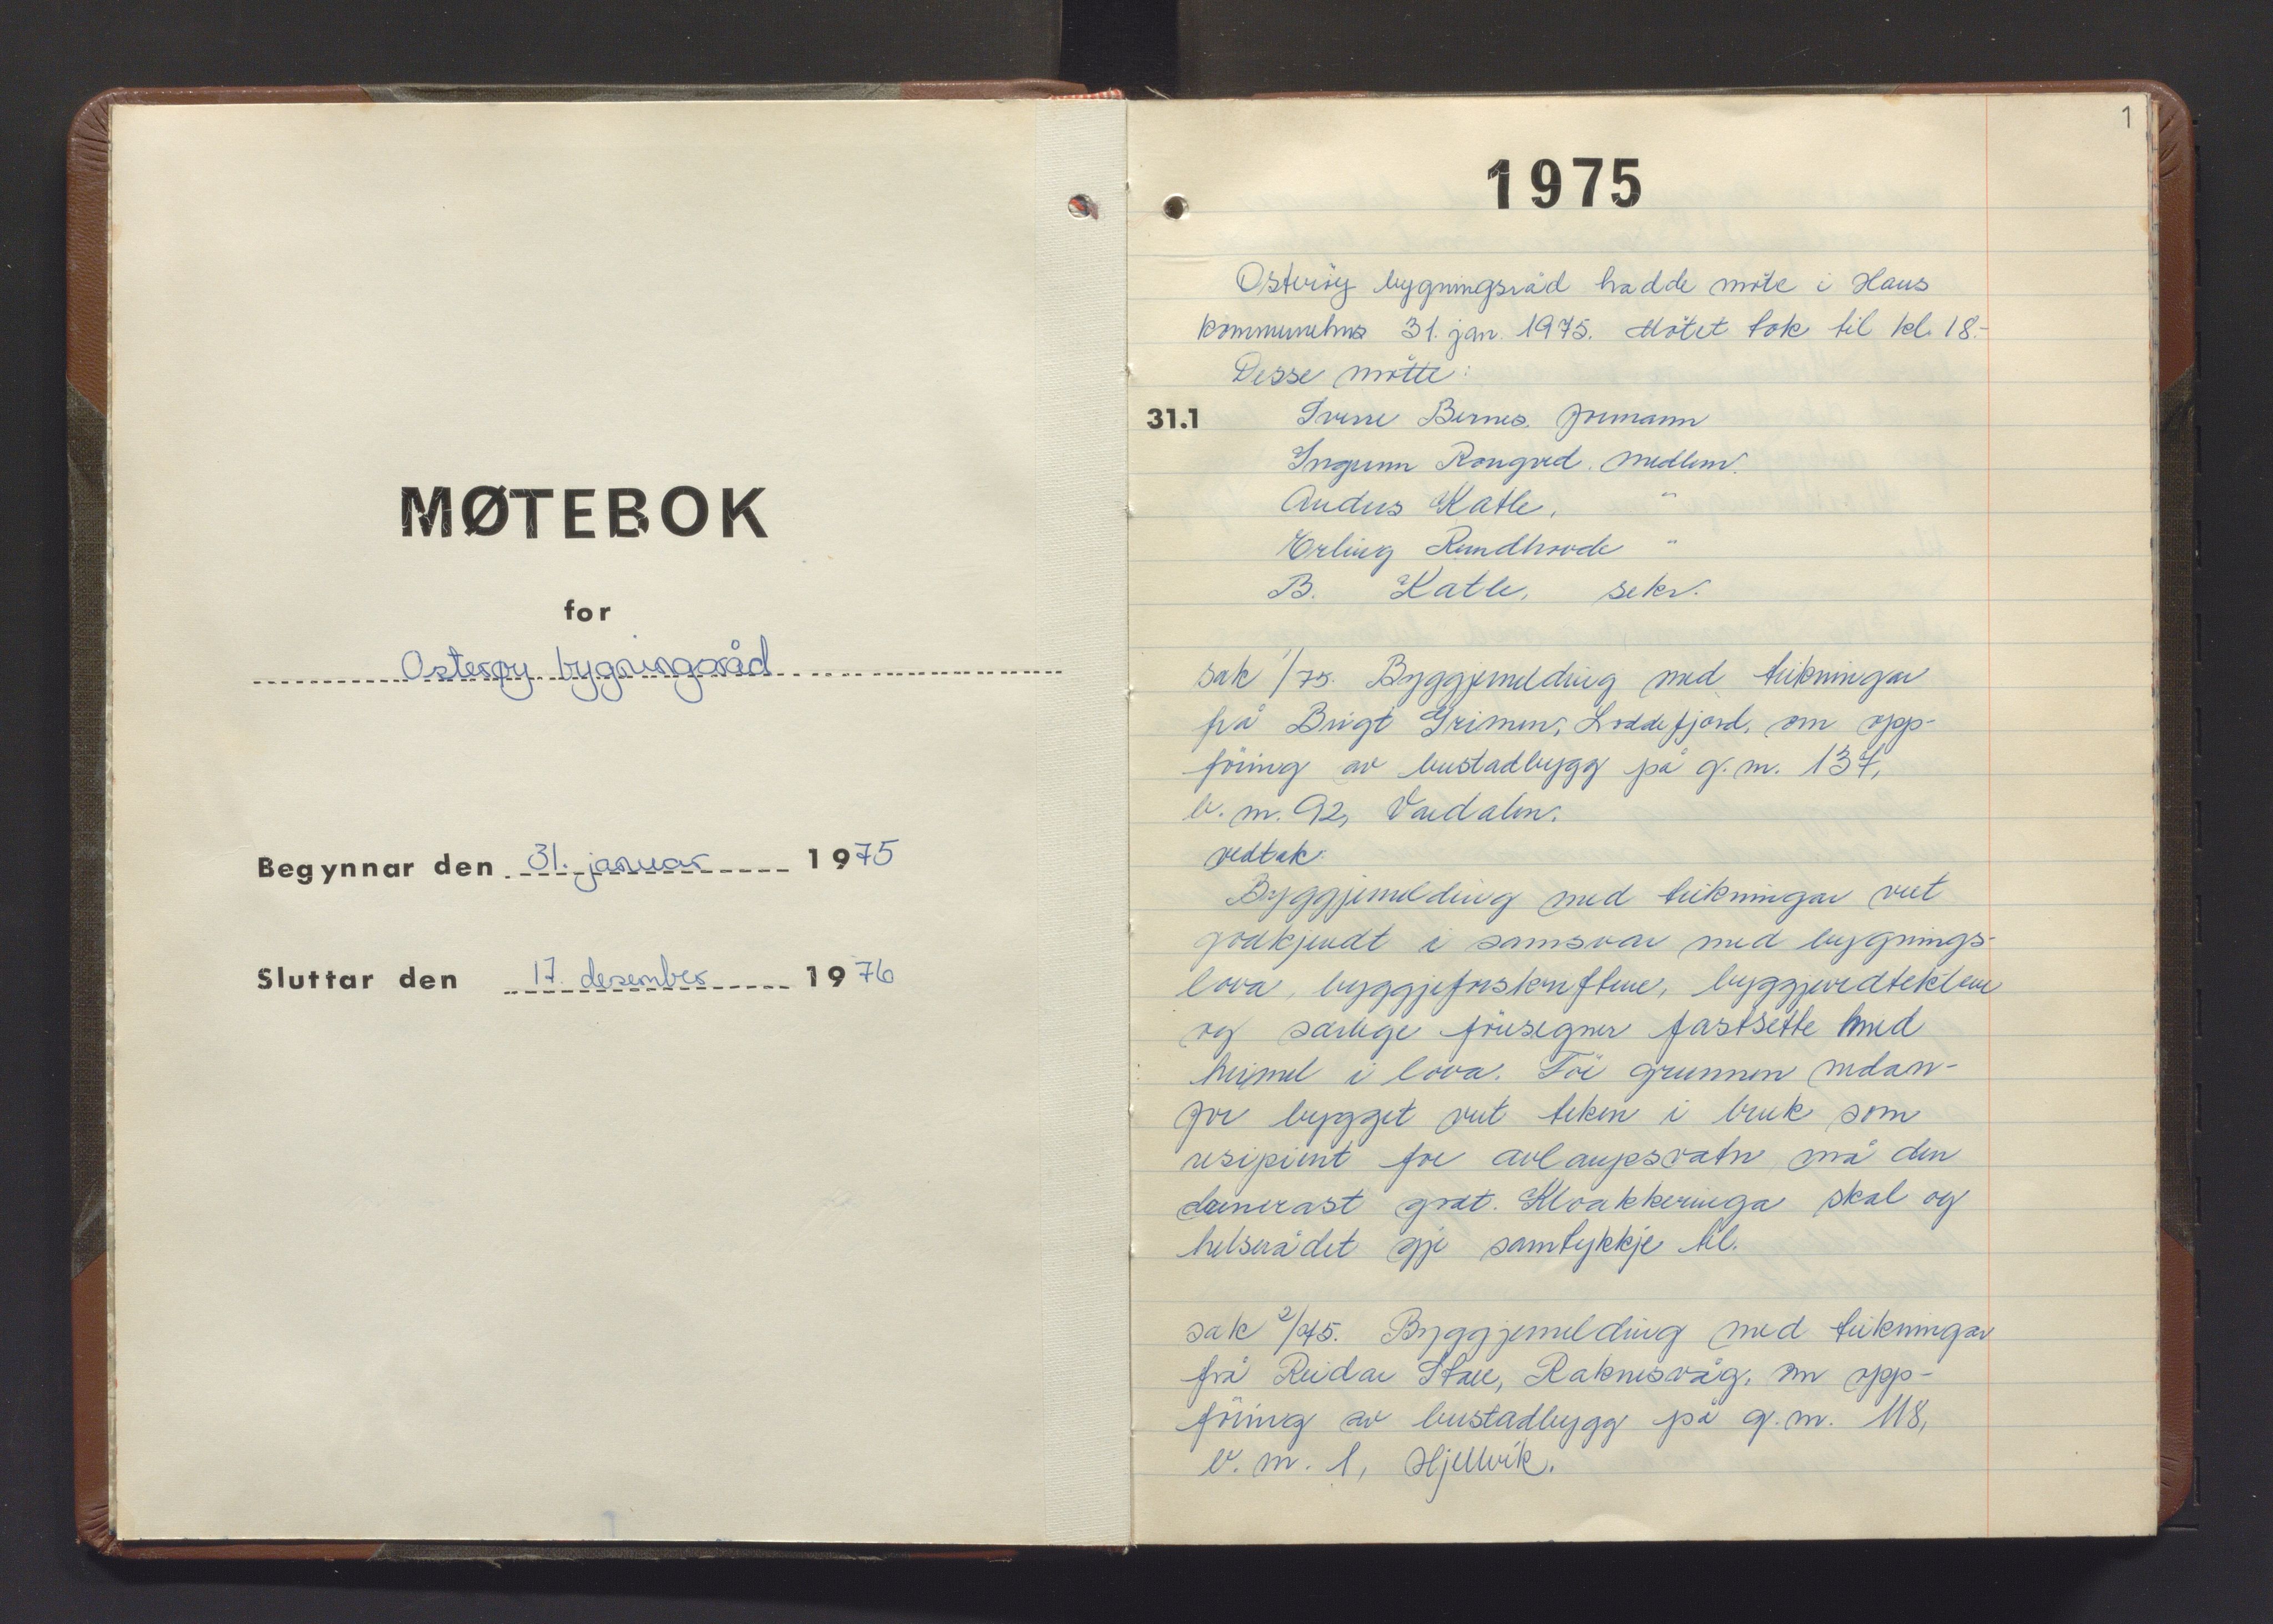 MØTEBOK
for
Osterøy bygningsråd
Begynnar den 31. januar 1975
Sluttar den 17. desember 1976
1
1975
Osterøy bygningsråd hadde møte i Haus
kommunehus 31. jan. 1975. Møtet tok til kl. 18.-
Desse møtte:
31.1
Sverre Bernes. formann
Ingunn Rongved. medlem.
Anders Hatle. "
Erling Rundhovde "
B. Hatle, sekr.
sak 1/75. Byggjemelding med teikningar
frå Brigt Grimen, Loddefjord, om opp-
føring av bustadbygg på g.nr. 137,
b.nr. 92, Vardalen.
vedtak:
Byggjemelding med teikningar vert
godkjendt i samsvar med bygnings-
lova, byggjeforskriftene, byggjevedtektene
og særlege føresegner fastsette med
heimel i lova. Før grunnen nedan-
for bygget vert teken i bruk som
resipient for avlaupsvatn må den
drenerast godt. Kloakkeringa skal og
helserådet gje samtykkje til.
sak 2/75. Byggjemelding med teikningar
frå Reidar Stare, Raknesvåg, om opp-
føring av bustadbygg på g.nr. 118,
b.nr. 1, Hjellvik.